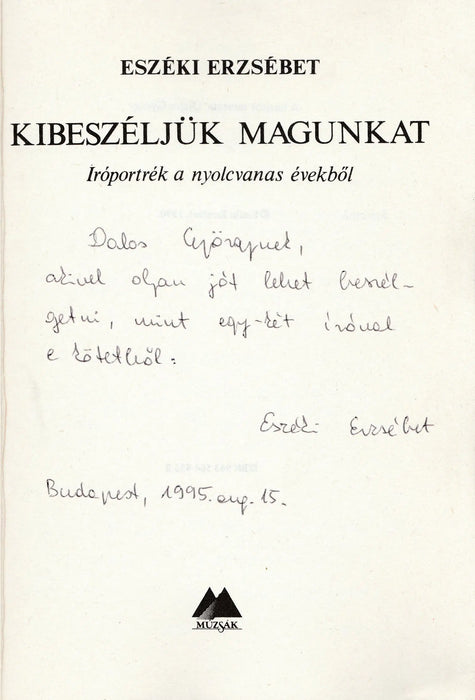 ESZÉKI ERZSÉBET
KIBESZÉLJÜK MAGUNKAT
Íróportrék a nyolcvanas évekből
Dalos Györgynek,
akivel olyan jót lehet beszél-
getni, mint egy-két íróval
e kötetből:
Eszéki Erzsébet
Budapest, 1995. aug. 15.
MÚZSÁK